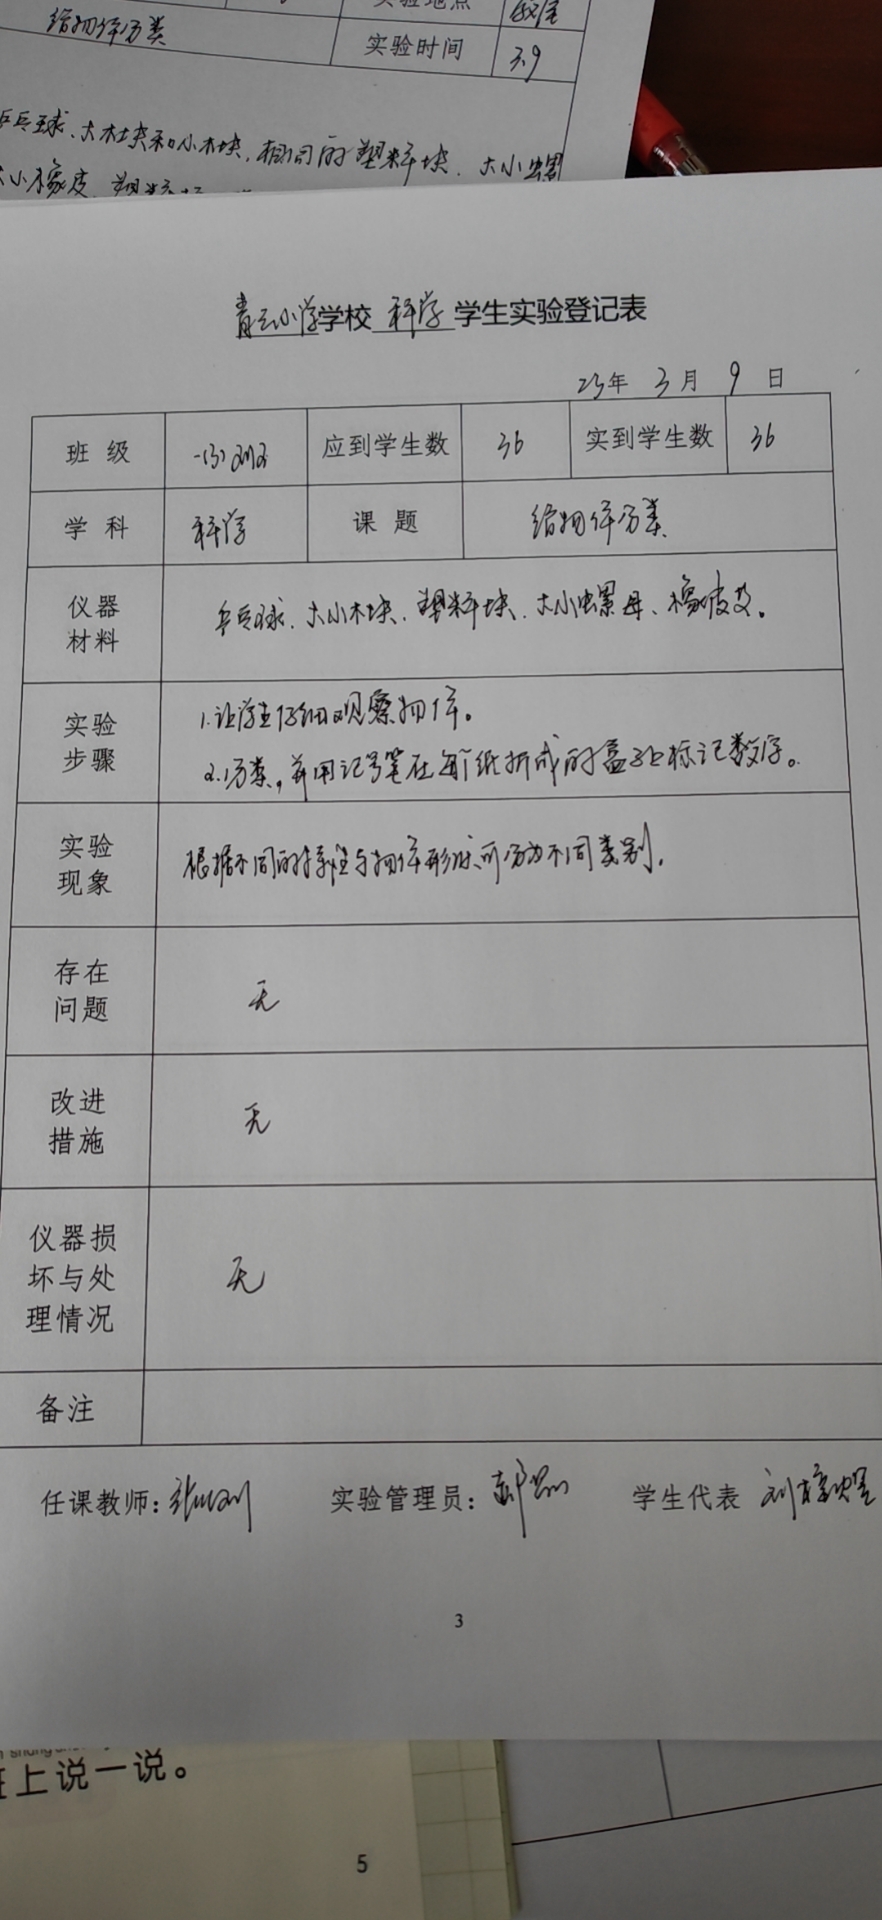 实验地点 教室
给物体分类 实验时间 3.9
乒乓球、大木块和小木块、相同的塑料块、大小螺
大小橡皮、塑料
青云小学学校 科学 学生实验登记表
23年 3月 9日
班级 一(3)班 应到学生数 36 实到学生数 36
学科 科学 课题 给物体分类
仪器材料 乒乓球、大小木块、塑料块、大小螺母、橡皮及。
实验步骤 1.让学生仔细观察物体。
2.分类,并用记号笔在每个纸折成的盒子上标记数字。
实验现象 根据不同的特性与物体形状可分为不同类别。
存在问题 无
改进措施 无
仪器损坏与处理情况 无
备注
任课教师: 实验管理员: 学生代表 刘梓煜
3
班上说一说。
5